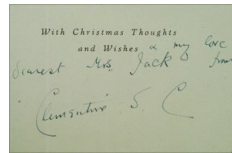 With Christmas Thoughts
and Wishes & my love
Dearest Mrs Jack from
Clementine S. C